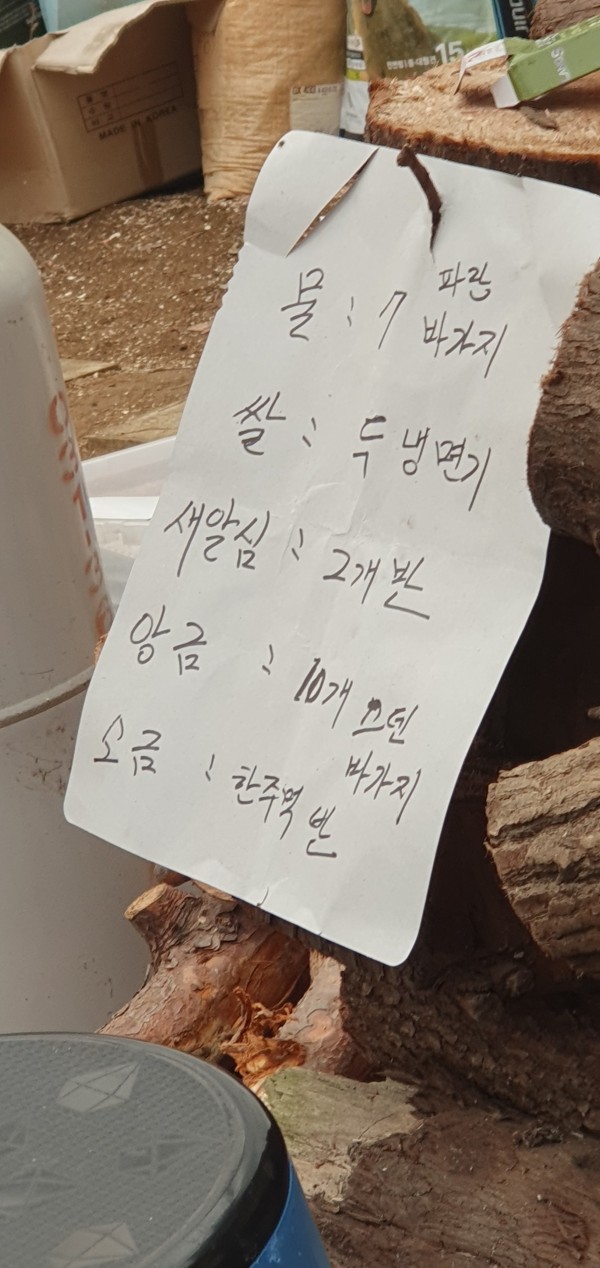 MADE IN KOREA
15
물 : 7 파란
바가지
쌀 : 두 냉면기
새알심 : 2개 반
앙금 : 10개 스덴
바가지
소금 : 한주먹
반